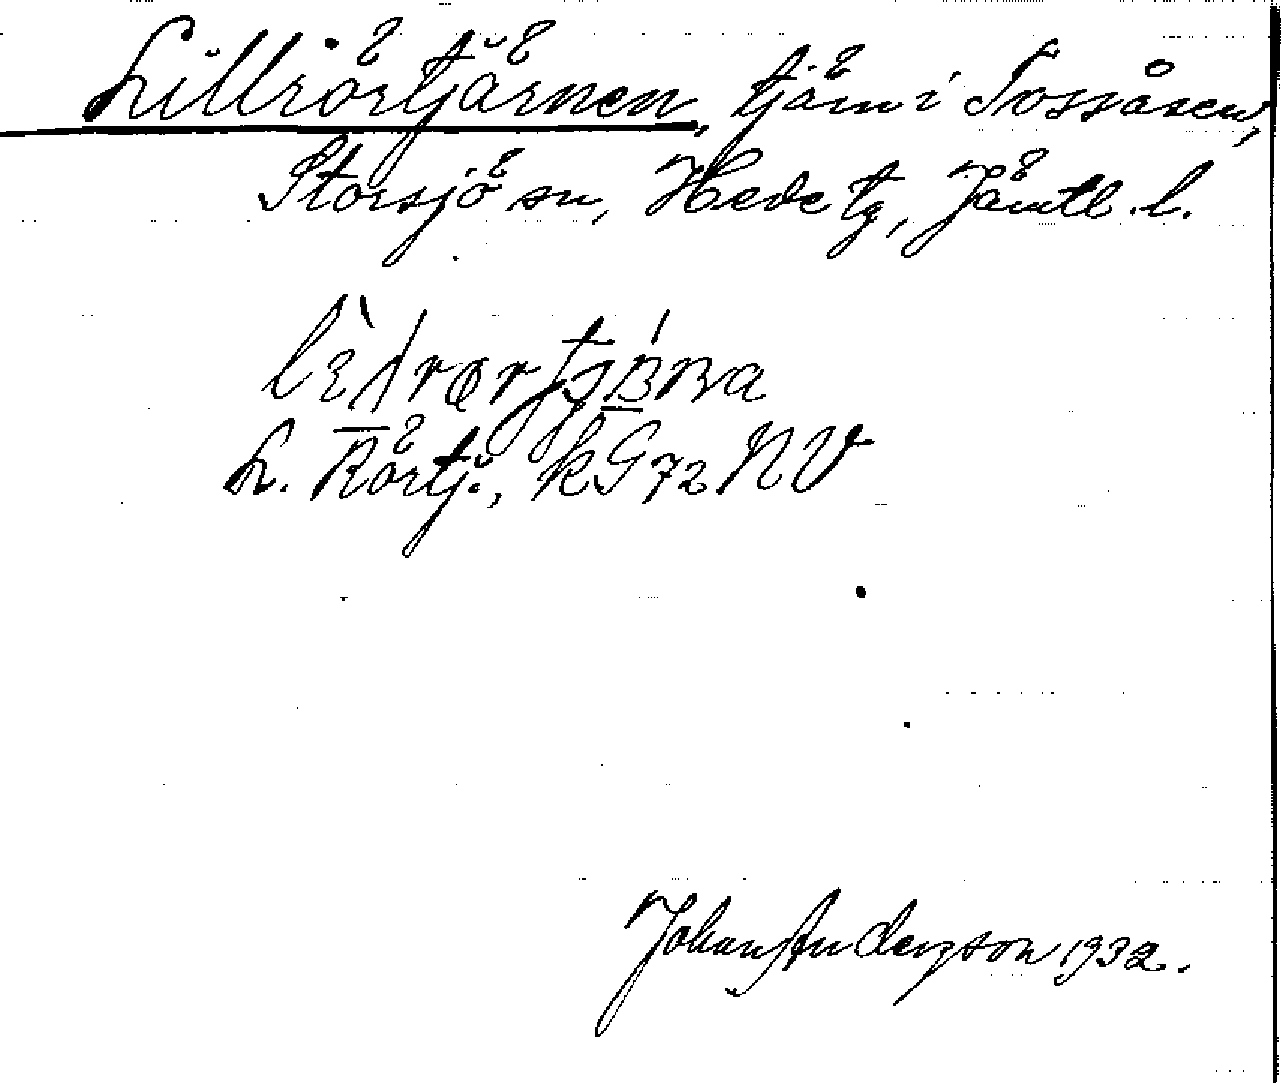 Lillrörtjärnen, tjärn i Tossåsen,
Storsjö sn, Hede tg, Jämtl. l.
L. Rörtj:, kG72NV
Johan Anderzson 1932.